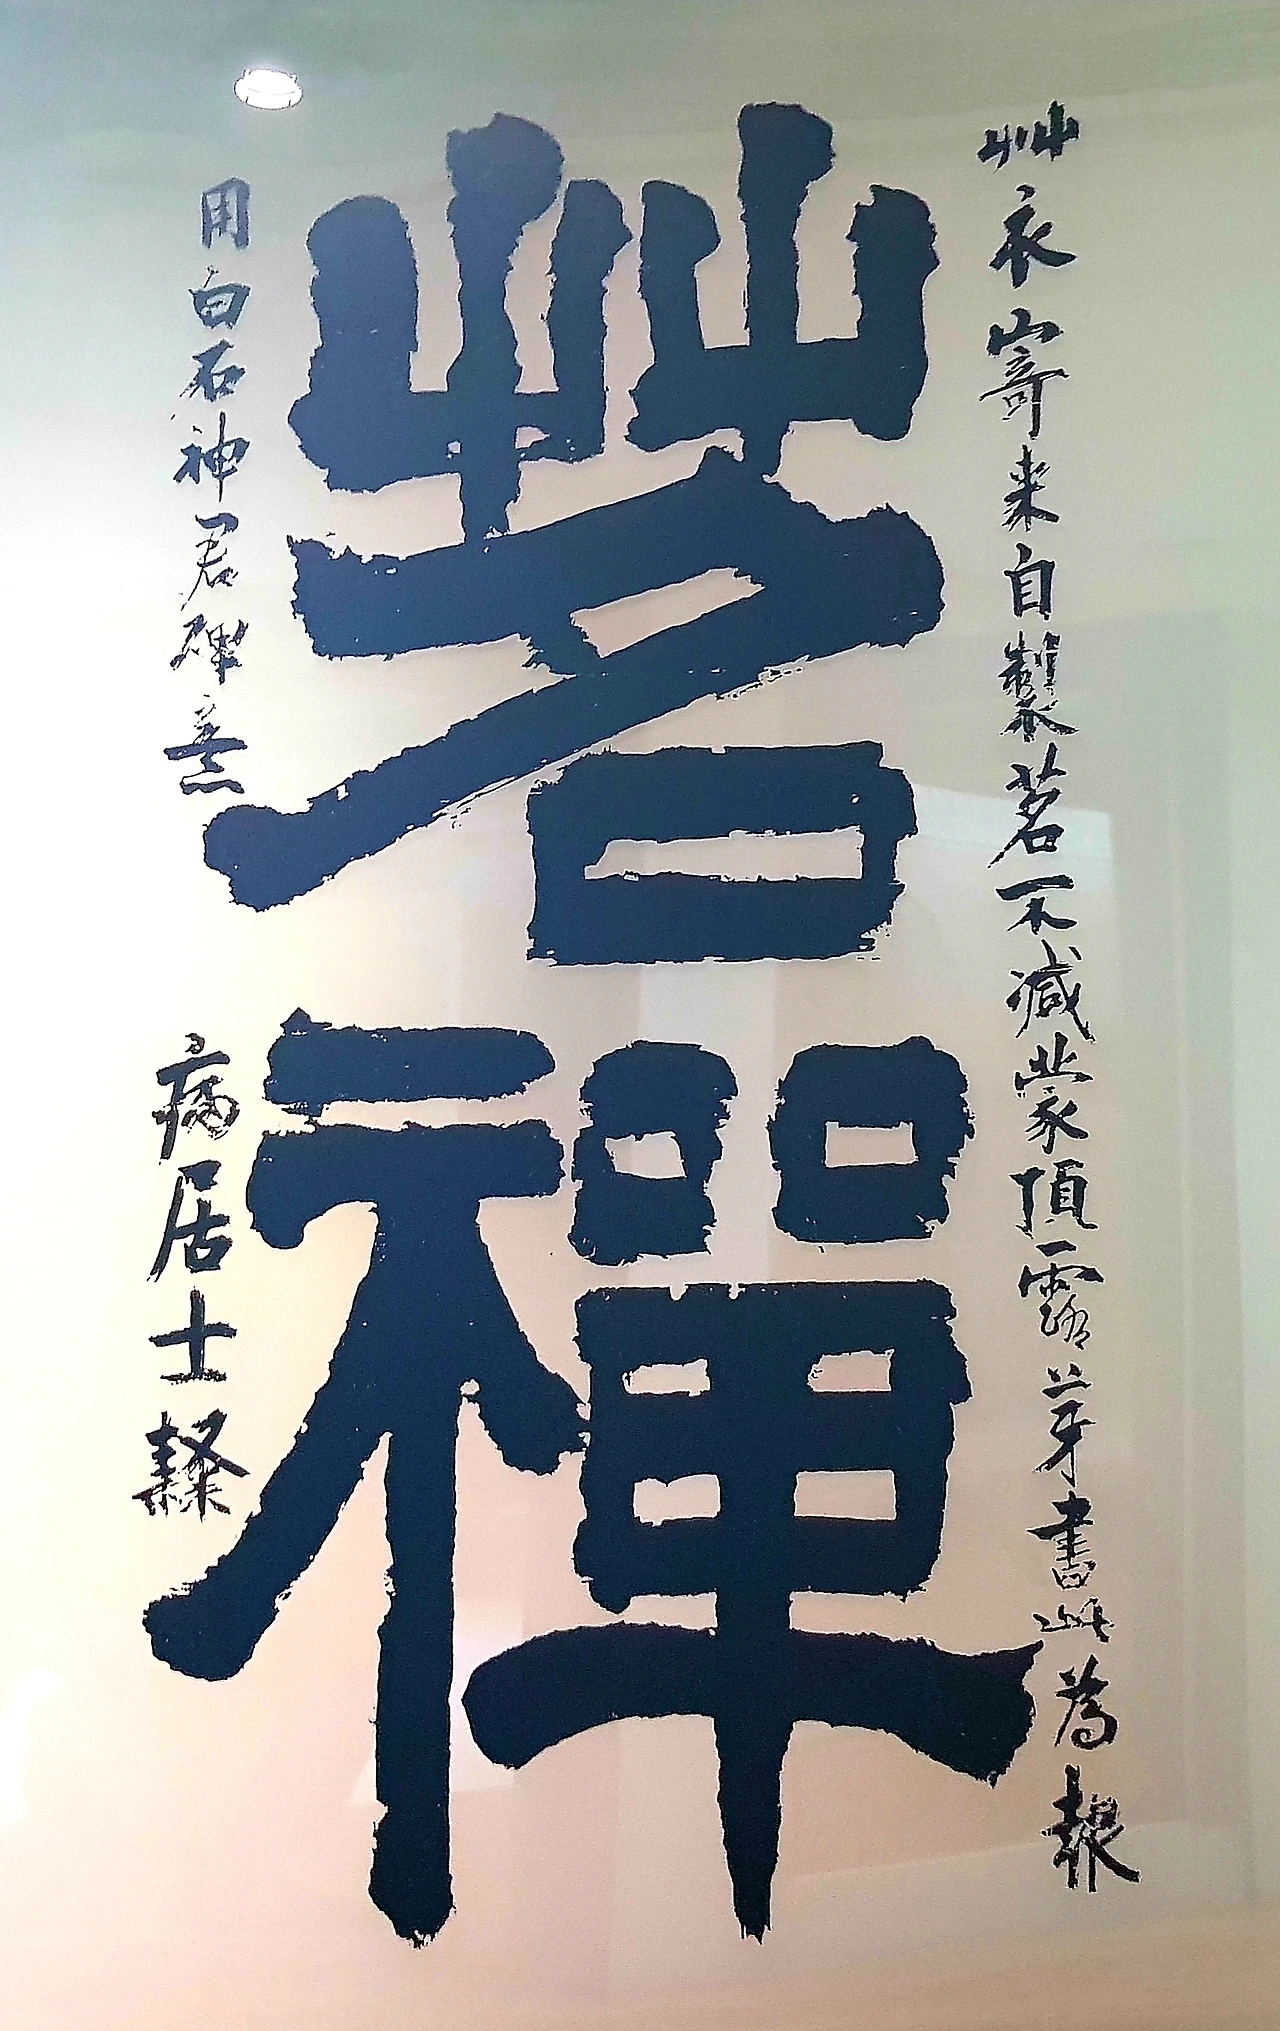 艸衣寄來自製茗不減蒙頂露芽書此為報
茗禪
用白石神君碑意 病居士隷